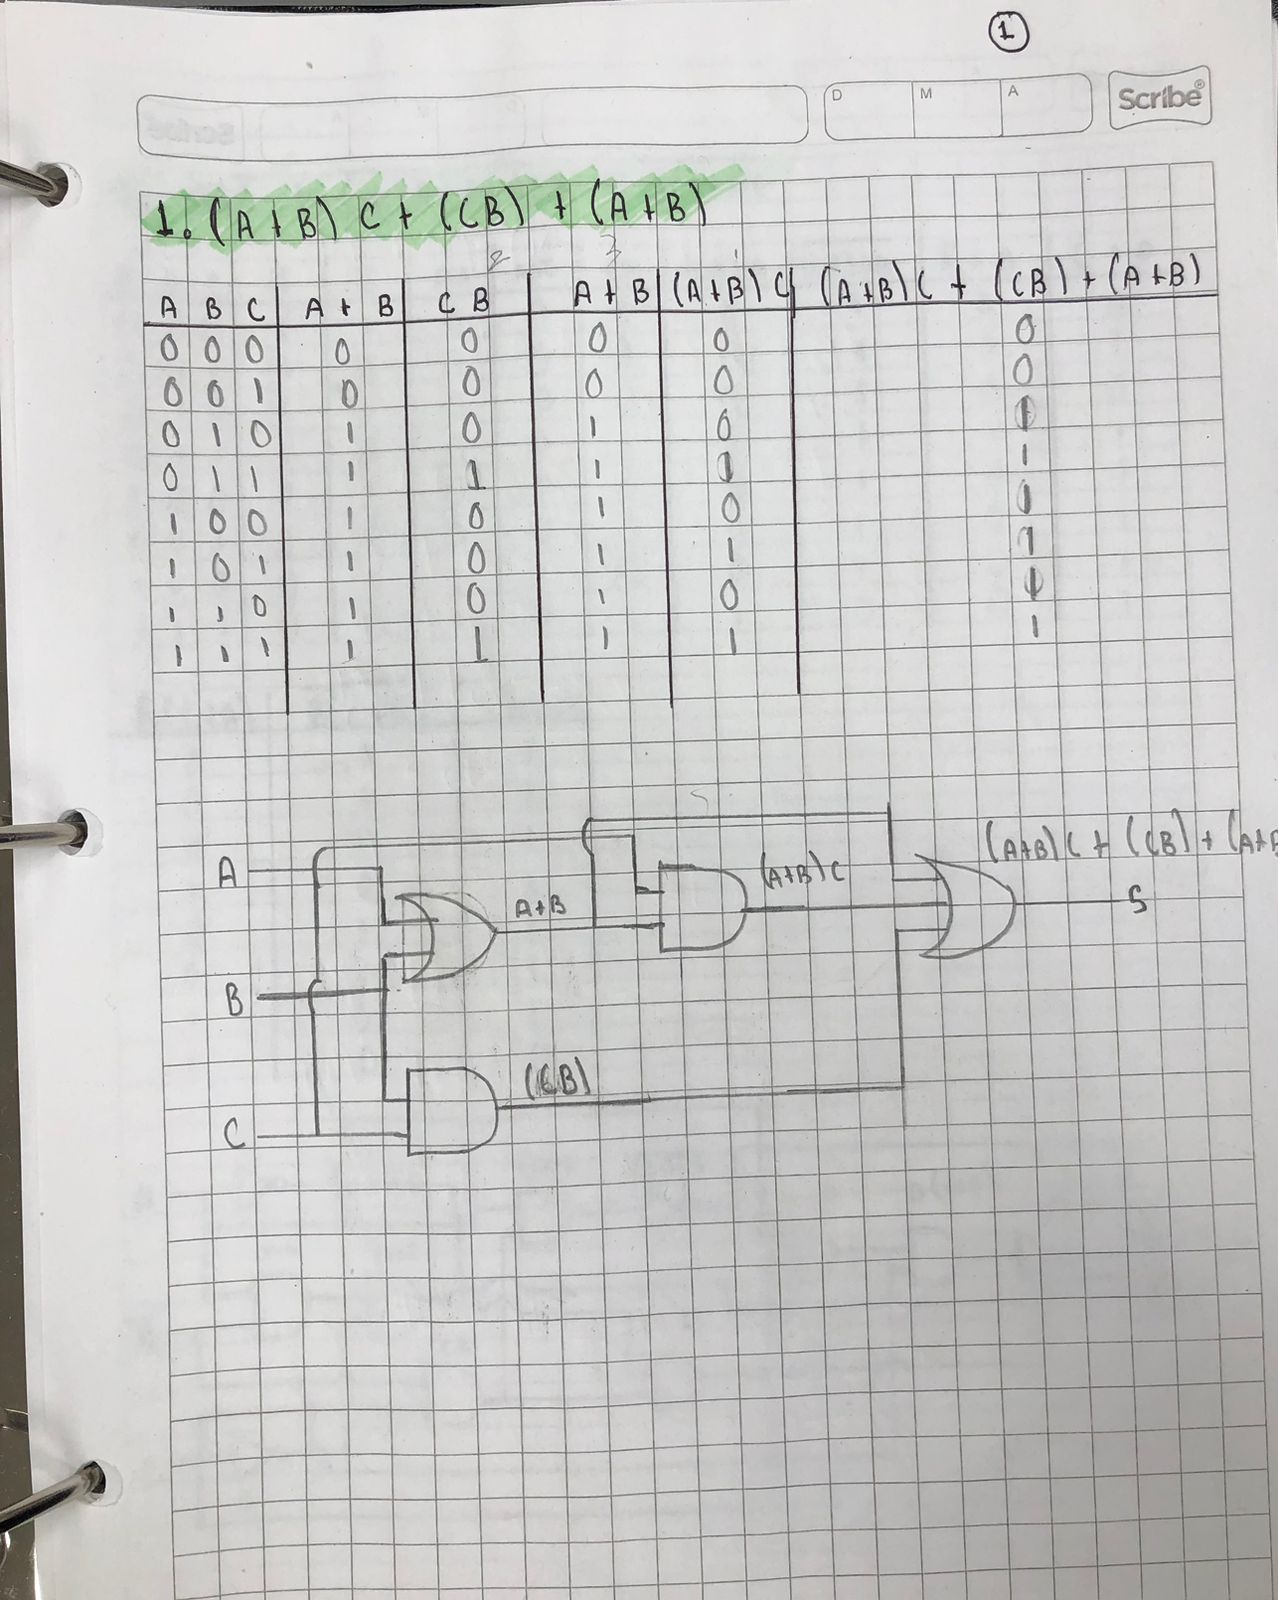 1
D M A Scribe®
1. (A+B) C + (CB) + (A+B)
2 3 1
A B C A + B C B A + B (A+B) C (A+B) C + (CB) + (A+B)
0 0 0 0 0 0 0 0
0 0 1 0 0 0 0 0
0 1 0 1 0 1 0 1
0 1 1 1 1 1 1 1
1 0 0 1 0 1 0 1
1 0 1 1 0 1 1 1
1 1 0 1 0 1 0 1
1 1 1 1 1 1 1 1
(A+B) C + (CB) + (A+B
A A+B (A+B) C S
B
(CB)
C